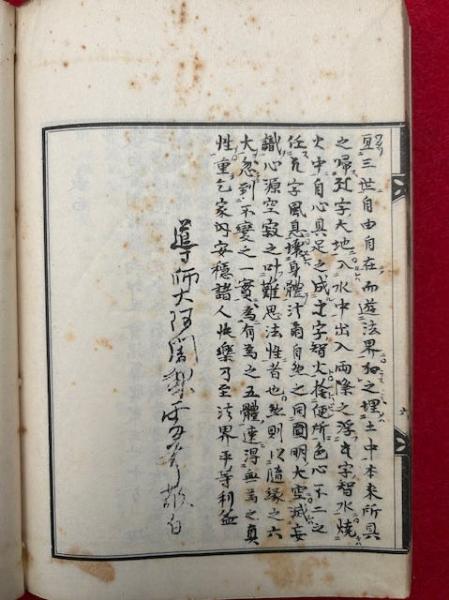 亘三世自由自在而遊法界加之埋土中本来所具
之帰字大地入水中出入両際之浮字智水焼
火中自心具足之成字智火捨便所色心不二之
任字風息壊身體法爾自然之同圓明大空滅妄
識心源空寂之叶難思法性者也然則以随縁之六
大忽到不變之一實為有為之五體速得無為之真
性重乞家内安穏諸人快楽乃至法界平等利益
導師大阿闍梨敬白